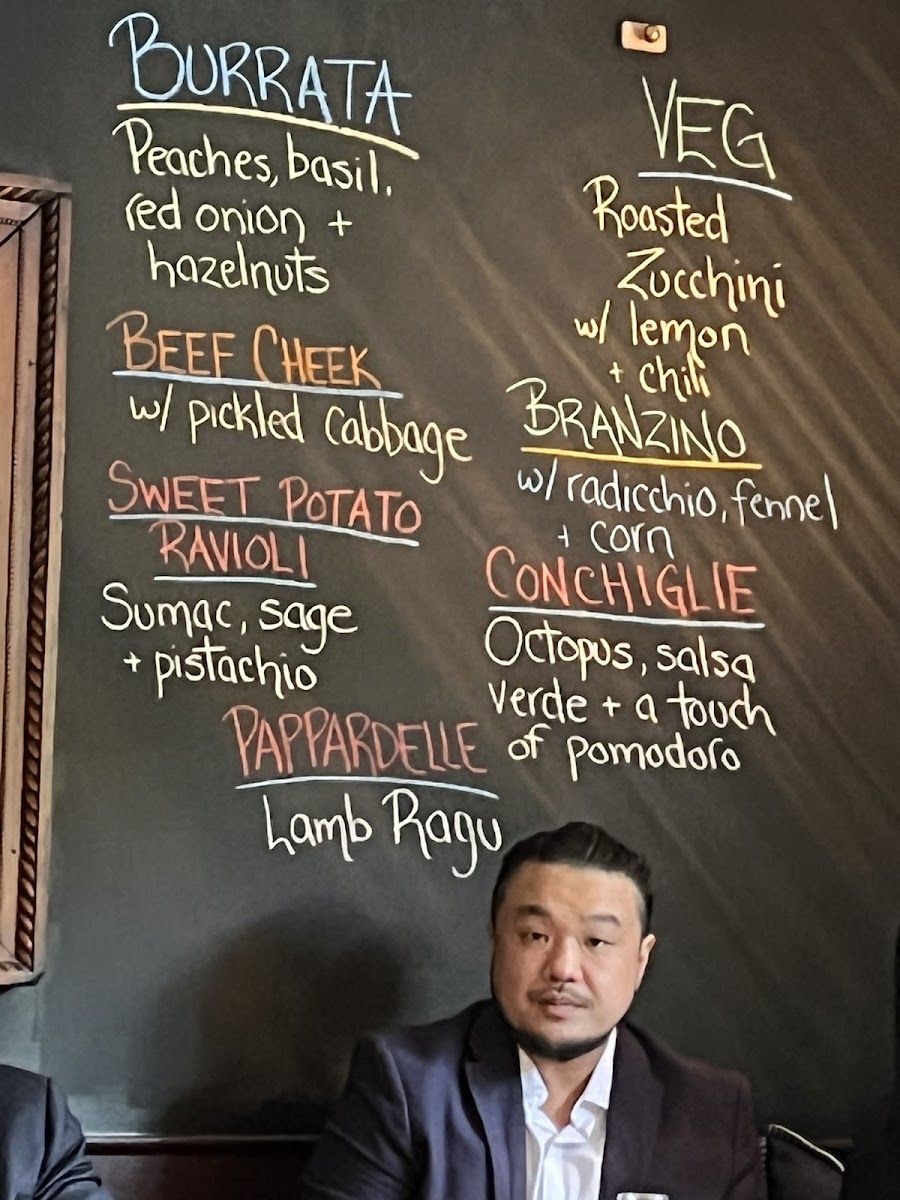 BURRATA
Peaches, basil,
red onion +
hazelnuts
BEEF CHEEK
w/ pickled cabbage
SWEET POTATO
RAVIOLI
Sumac, sage
+ pistachio
PAPPARDELLE
Lamb Ragu
VEG
Roasted
Zucchini
w/ lemon
+ chili
BRANZINO
w/ radicchio, fennel
+ corn
CONCHIGLIE
Octopus, salsa
verde + a touch
of pomodoro